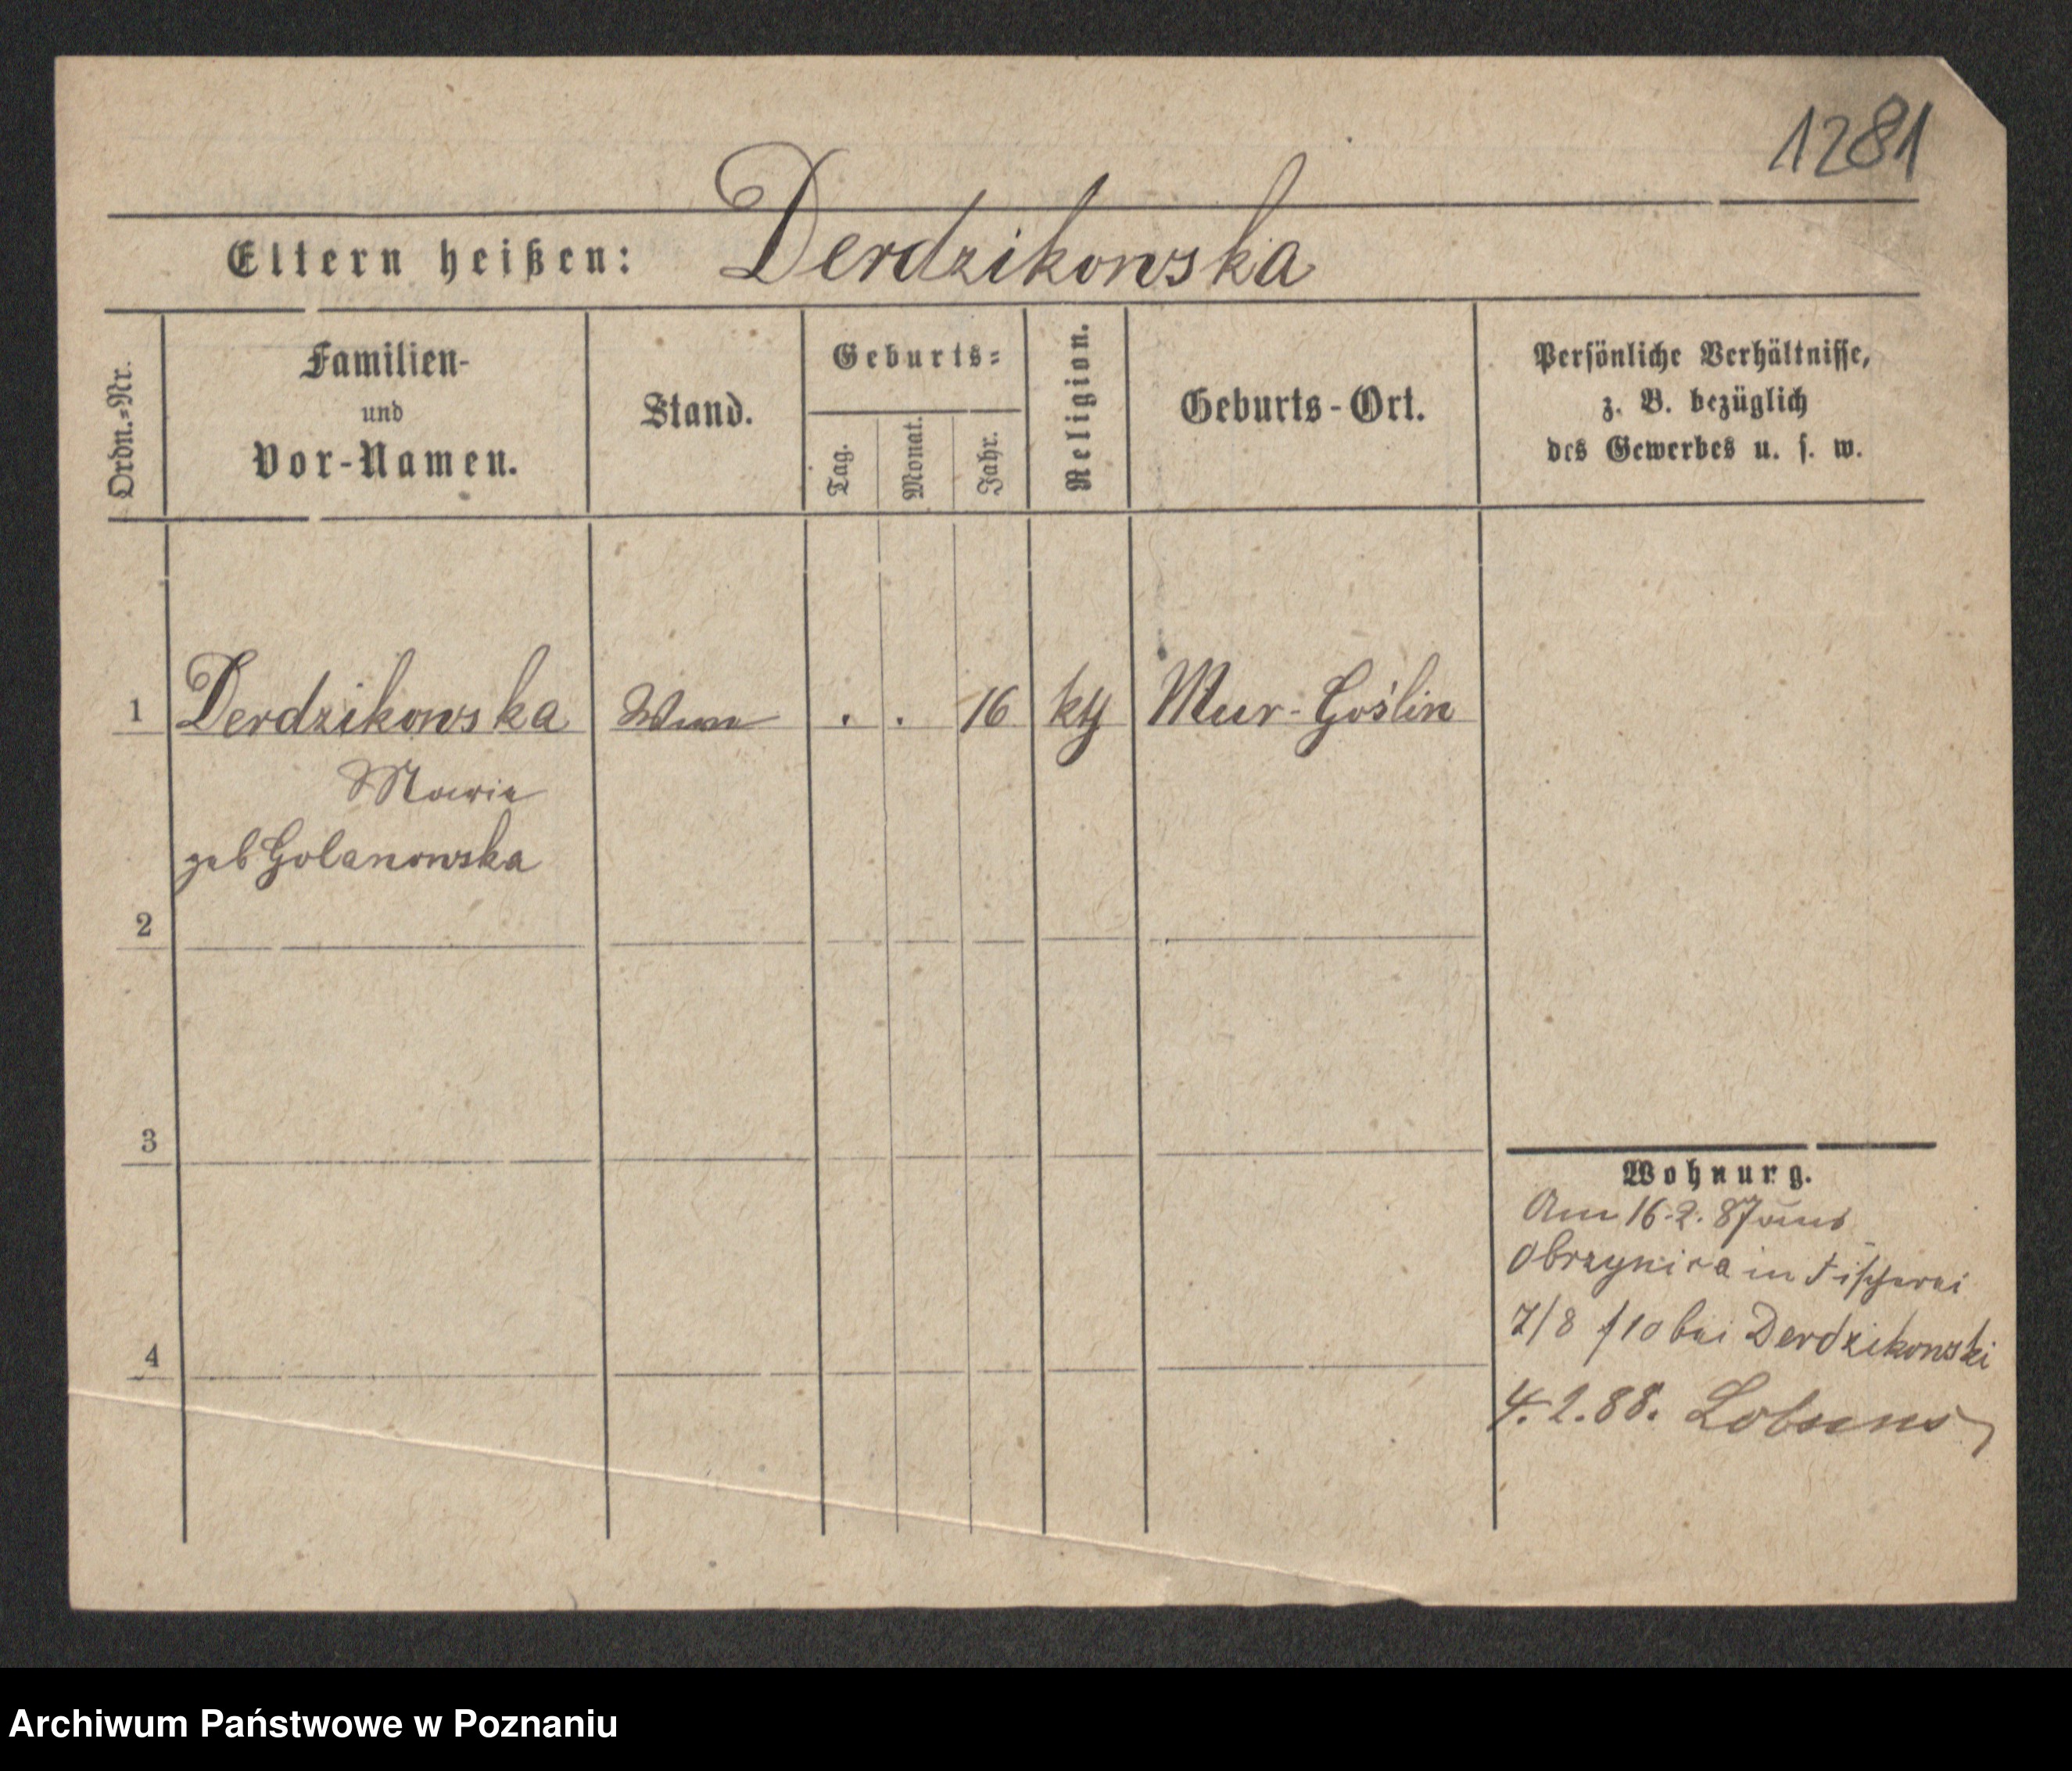 1281
Eltern heißen: Derdzikowska
Ordn.=Nr.
Familien-
und
Vor-Namen.
Stand.
Geburts=
Tag.
Monat.
Jahr.
Religion.
Geburts-Ort.
Persönliche Verhältnisse,
z. B. bezüglich
des Gewerbes u. s. w.
1 Derdzikowska . . 16 kth Mur-Goślin
Maria
geb Golanowska
2
3
4
Wohnung.
Am 16.2.87 aus
Obrzynica in Fischerei
7/8 f10 bei Derdzikowski
4.2.88. Lobsens
Archiwum Państwowe w Poznaniu